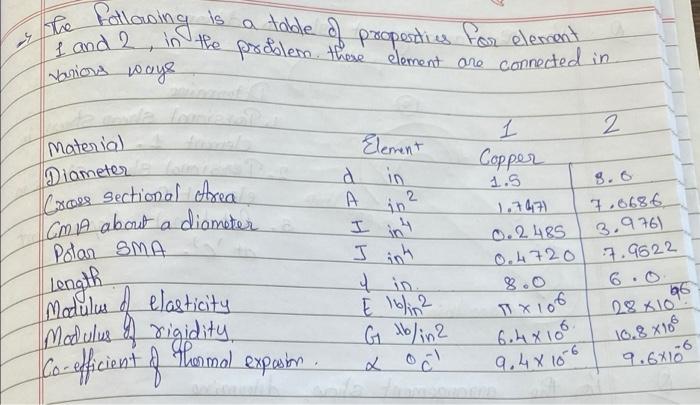 → The Following is a table of properties for element
1 and 2, in the problem. these element are connected in
various ways
1 2
Material Element Copper
Diameter d in 1.5 3.0
Cross sectional Area A in² 1.7671 7.0686
CMA about a diameter I in⁴ 0.2485 3.9761
Polar SMA J in⁴ 0.4720 7.9522
Length l in. 8.0 6.0
Modulus of elasticity E lb/in² π×10⁶ 28×10⁶
Modulus of rigidity G lb/in² 6.4×10⁶ 10.8×10⁶
Co-efficient of Thermal expasion. α °c⁻¹ 9.4×10⁻⁶ 9.6×10⁻⁶